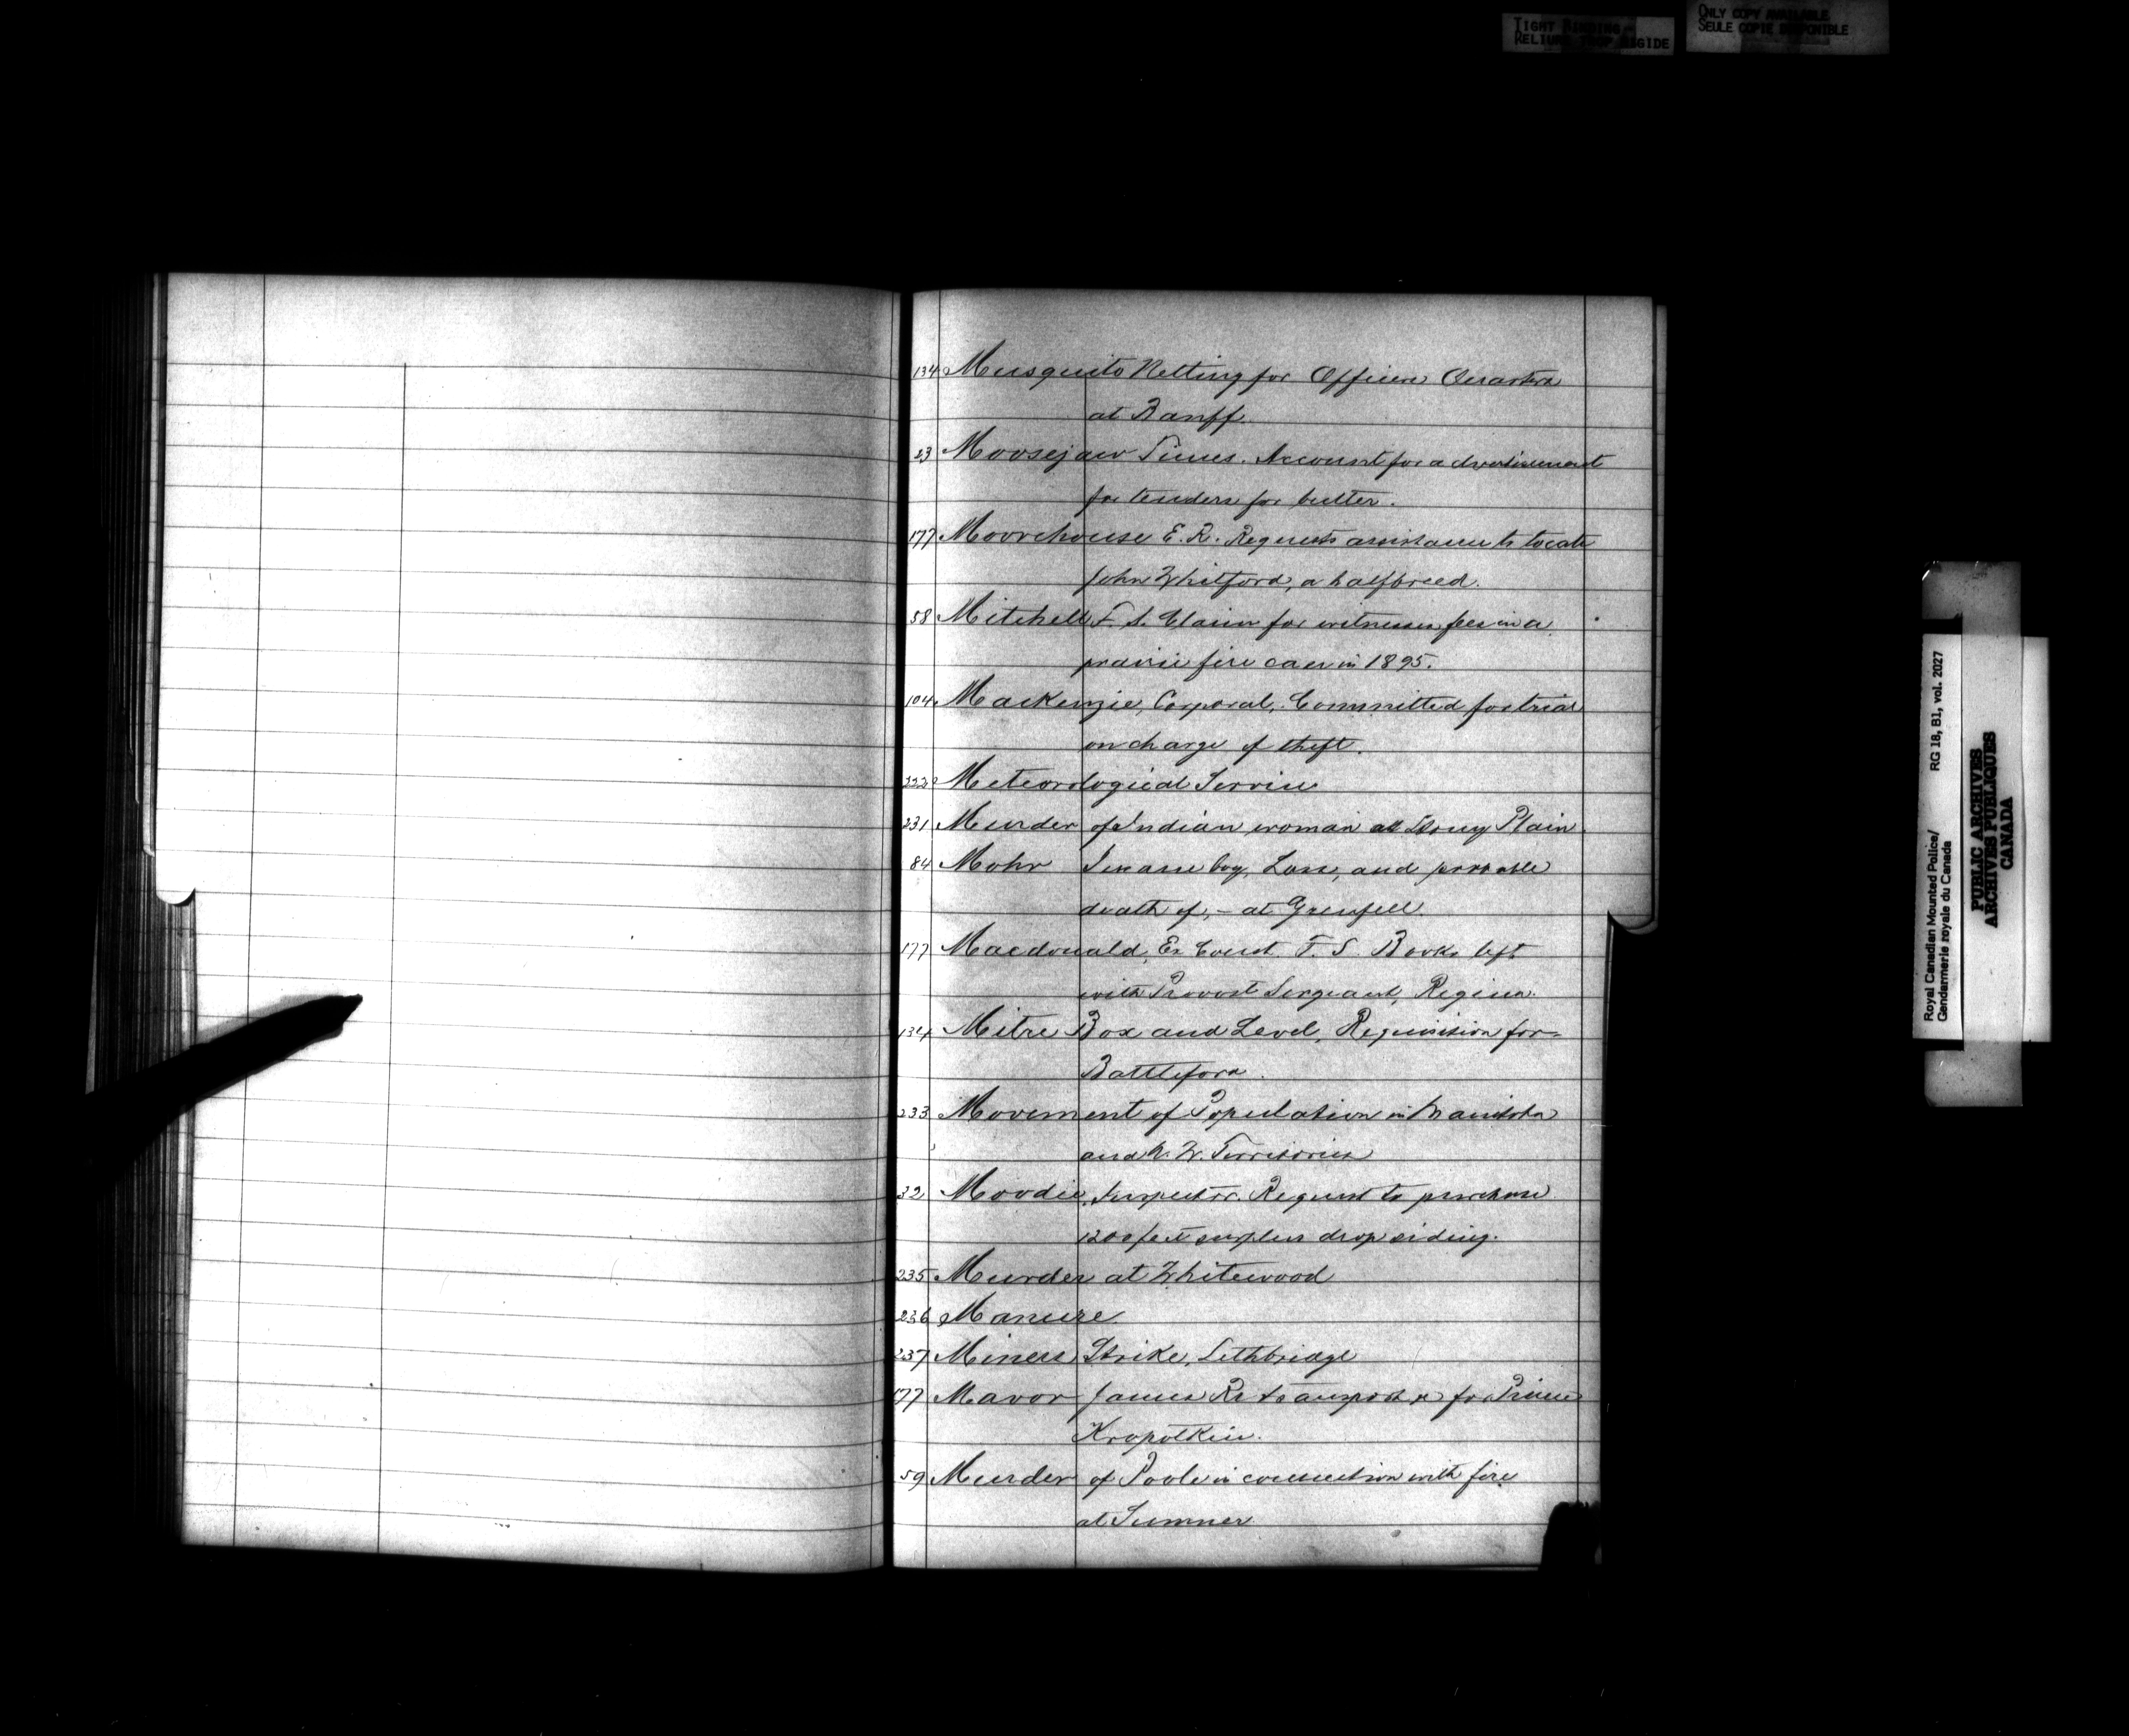 TIGHT BINDING
RELIURE TROP RIGIDE
ONLY COPY AVAILABLE
SEULE COPIE DISPONIBLE
134 Musquito Netting for Officers Quarters
at Banff.
23 Moosejaw Times. Account for advertisement
for tenders for butter.
177 Moorehouse E. R. Requests assistance to locate
John Whitford, a halfbreed.
58 Mitchell F. S. Claim for witnesses fees in a
prairie fire case in 1895.
104 MacKenzie, Corporal, Committed for trial
on charge of theft.
222 Meteorological Service
231 Murder of Indian woman at Stony Plain
84 Mohr Insane boy, Loss, and probable
death of, - at Grenfell.
177 Macdonald, Ex Const. F. S. Books left
with Provost Sergeant, Regina.
134 Mitre Box and Level, Requisition for -
Battleford.
233 Movement of Population in Manitoba
and N. W. Territories
32 Moodie, Inspector. Request to purchase
1200 feet surplus drop siding.
235 Murder at Whitewood
236 Manure
237 Miners Strike, Lethbridge
177 Mavor James Re transport &c for Prince
Kropotkin.
59 Murder of Poole in connection with fire
at Sumner
Royal Canadian Mounted Police/ RG 18, B1, vol. 2027
Gendarmerie royale du Canada
PUBLIC ARCHIVES
ARCHIVES PUBLIQUES
CANADA